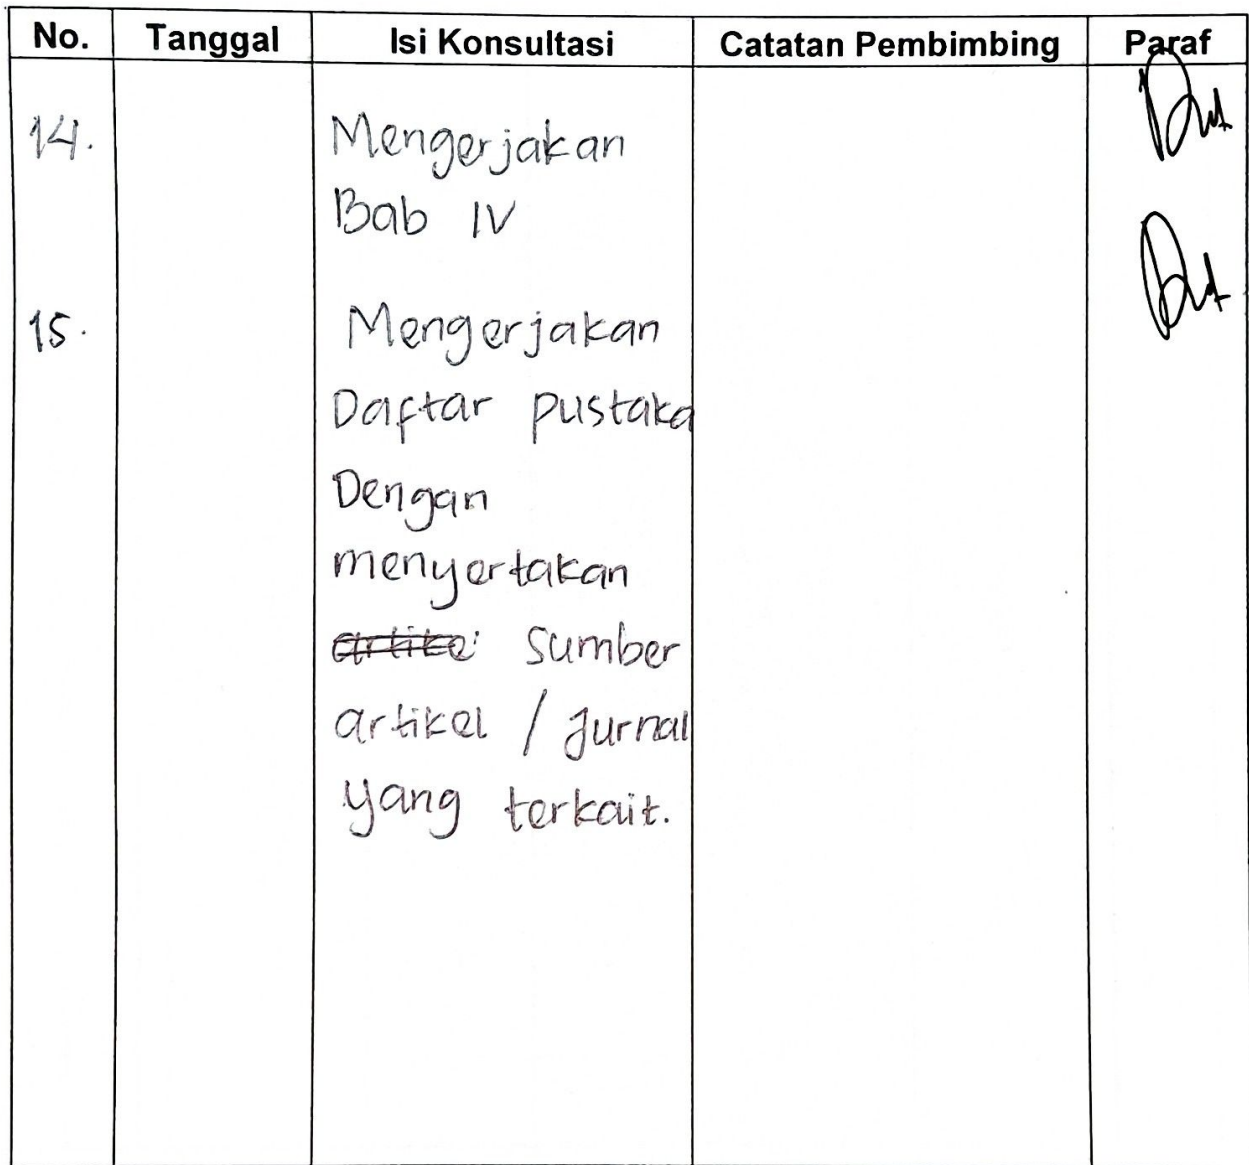 No. Tanggal Isi Konsultasi Catatan Pembimbing Paraf
14. Mengerjakan
Bab IV
15. Mengerjakan
Daftar pustaka
Dengan
menyertakan
sumber
artikel / Jurnal
yang terkait.